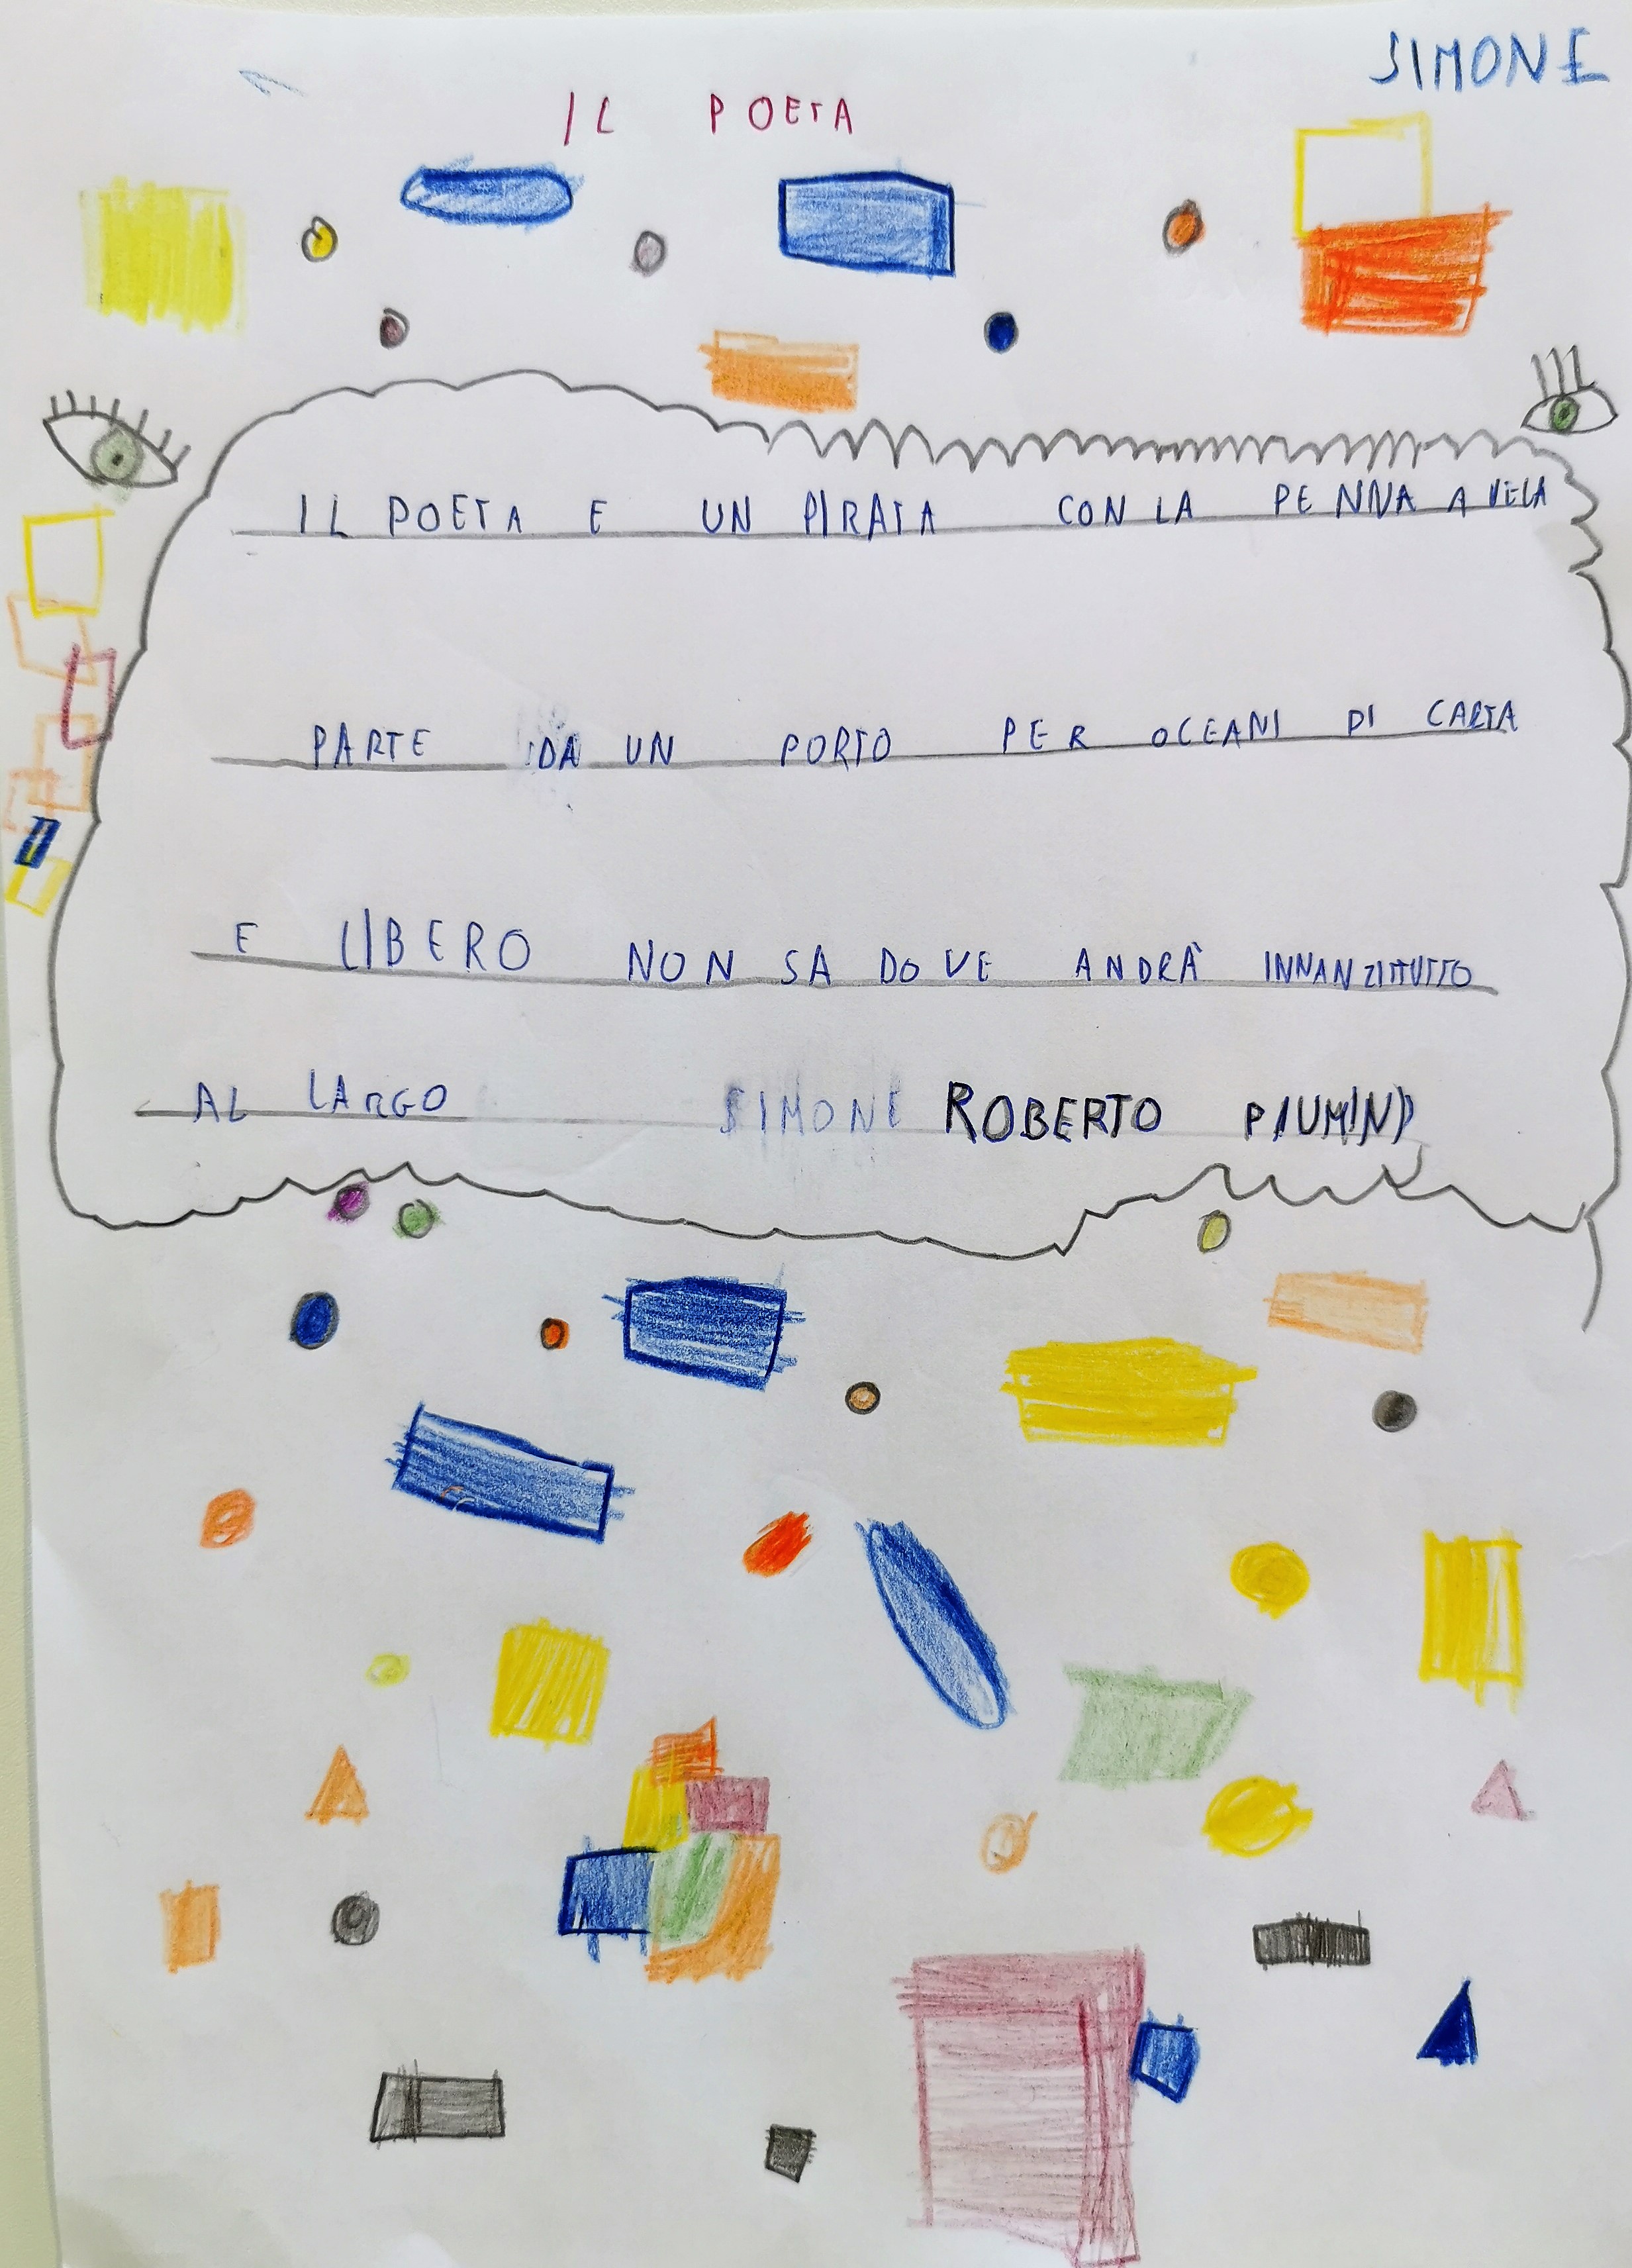 SIMONE
IL POETA
IL POETA E UN PIRATA CON LA PENNA A VELA
PARTE DA UN PORTO PER OCEANI DI CARTA
E LIBERO NON SA DOVE ANDRÀ INNANZITUTTO
AL LARGO SIMONE ROBERTO PIUMINI